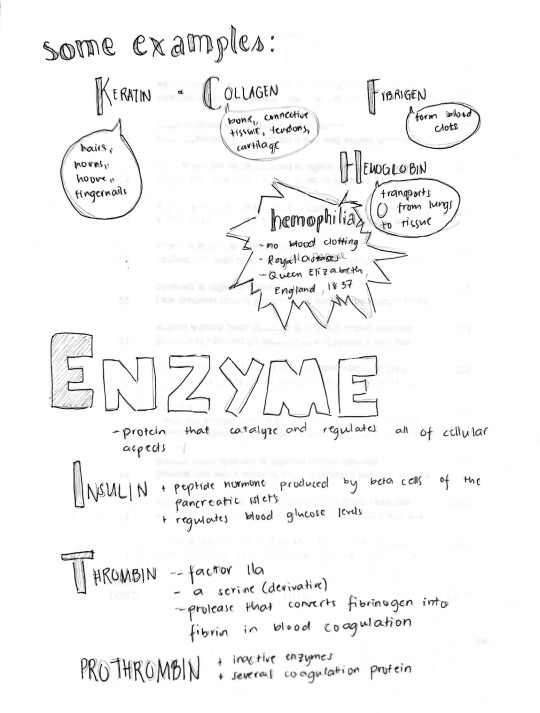 some examples:
KERATIN - COLLAGEN
FIBRIGEN
hairs,
horns,
hoove,,
fingernails
bone,, connective
tissue, tendons,
cartilage
form blood
clots
HEMOGLOBIN
transports
O from lungs
to tissue
hemophilia
- no blood clotting
- Royal
- Queen Elizabeth,
England, 1837
ENZYME
-protein that catalyze and regulates all of cellular
aspects
INSULIN + peptide hormone produced by beta cells of the
pancreatic islets
+ regulates blood glucose levels
THROMBIN -- factor IIa
- a serine (derivative)
-prolease that converts fibrinogen into
fibrin in blood coagulation
PROTHROMBIN + inactive enzymes
+ several coagulation protein